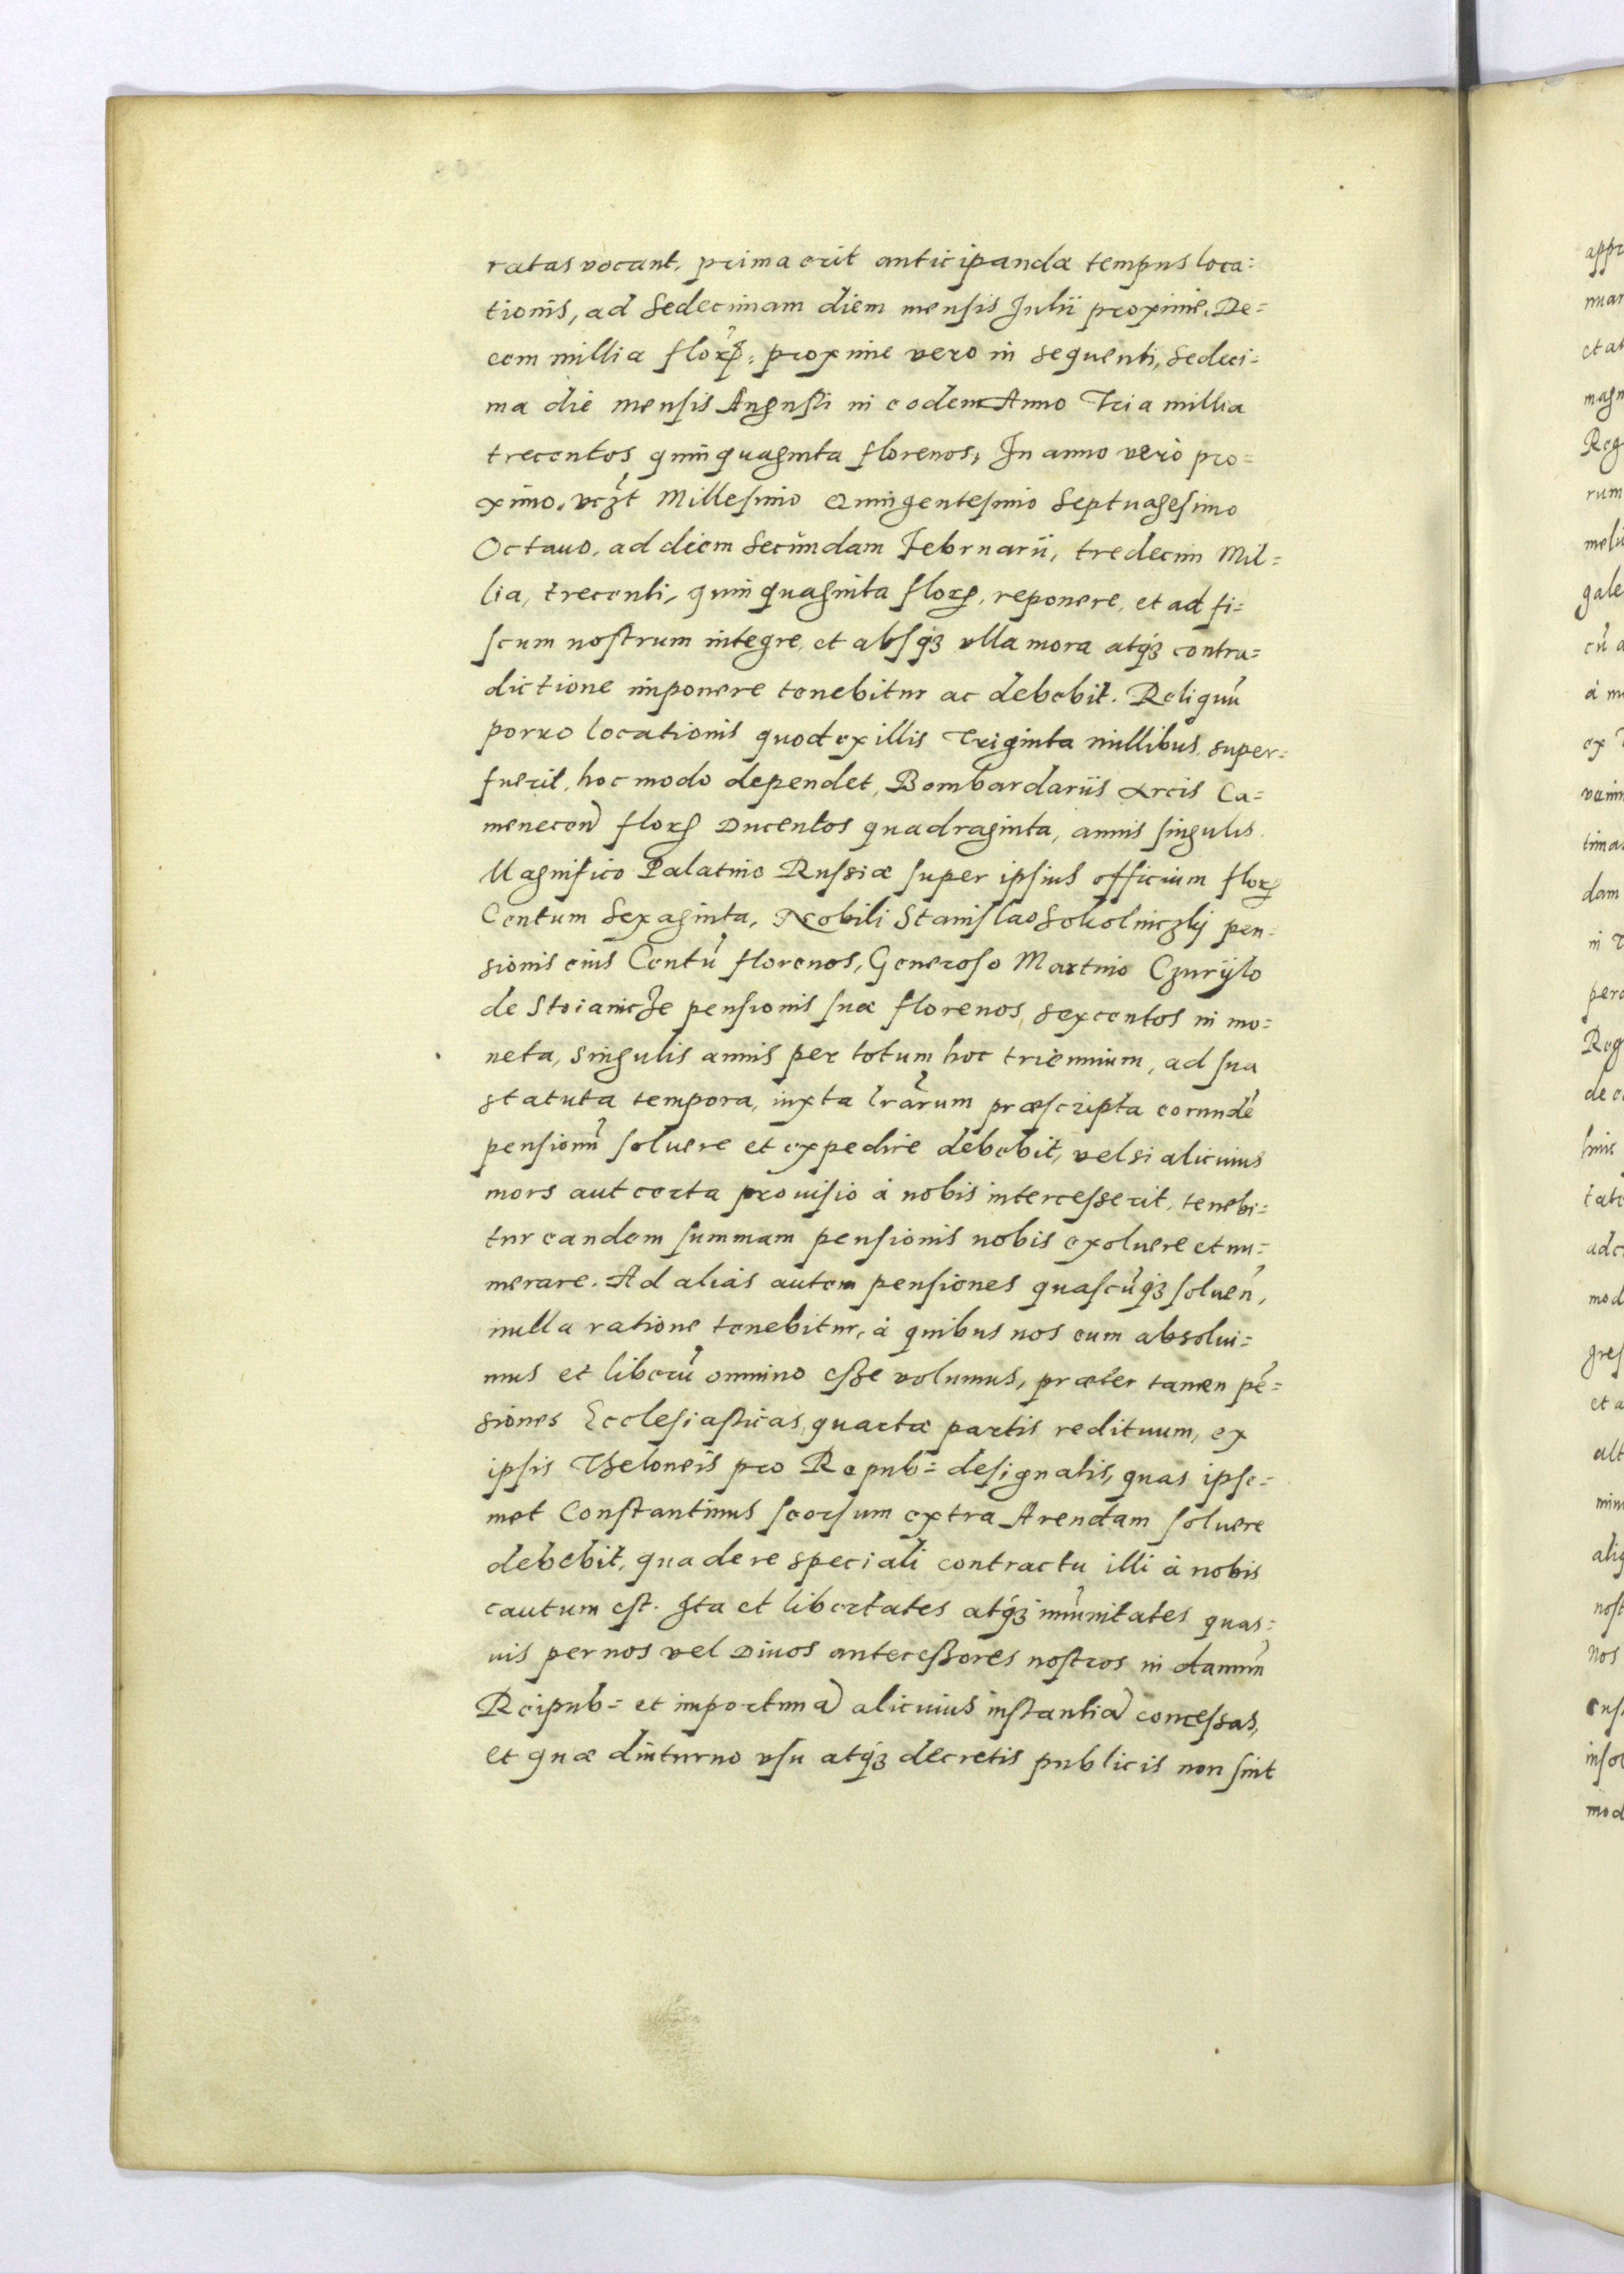 ratas vocant, prima erit anticipanda tempus loca:
tionis, ad Sedecimam diem mensis Julii proxime. De=
cem millia floꝝ: proxime vero in sequenti, Sedeci=
ma die mensis Augusti in eodem Anno Tria millia
trecentos quinquaginta florenos, In anno verò pro=
ximo, vczt Millesimo Quingentesimo Septuagesimo
Octauo, ad diem Secundam Februarii, tredecim Mil=
lia, trecenti, quinquaginta floꝝ, reponere, et ad fi=
scum nostrum integre, et absqꝫ vlla mora atqꝫ contra=
dictione imponere tenebitur ac debebit. Reliquũ
porro locationis quod ex illis Triginta millibus super=
fuerit, hoc modo dependet, Bombardariis Arcis Ca=
menecen̄ floꝝ Ducentos quadraginta, annis singulis.
Magnifico Palatino Russiæ super ipsius officium floꝝ
Centum Sexaginta, Nobili Stanislao Sokolniczky pen=
sionis eius Centũ florenos, Generoso Martino Czuryło
de Stoianicze pensionis suæ florenos sexcentos in mo=
neta, singulis annis per totum hoc triennium, ad sua
statuta tempora, iuxta lrãrum præscripta eorundẽ
pensionũ soluere et expedire debebit, vel si alicuius
mors aut certa prouisio à nobis intercesserit, tenebi=
tur eandem summam pensionis nobis exoluere et nu=
merare. Ad aliàs autem pensiones quascũqꝫ soluen̄,
nulla ratione tenebitur, à quibus nos eum absolui=
mus et liberũ omnino esse volumus, præter tamen pẽ=
siones Ecclesiasticas, quartæ partis redituum, ex
ipsis Theloneis pro Repub= designatis, quas ipse=
met Constantinus seorsum extra Arendam soluere
debebit, qua de re speciali contractu illi à nobis
cautum est. Ita et libertates atqꝫ imũnitates quas=
uis per nos vel Diuos antecessores nostros in damnũ
Reipub= et importuna alicuius instantia concessas,
et quæ diuturno vsu atqꝫ decretis publicis non sint